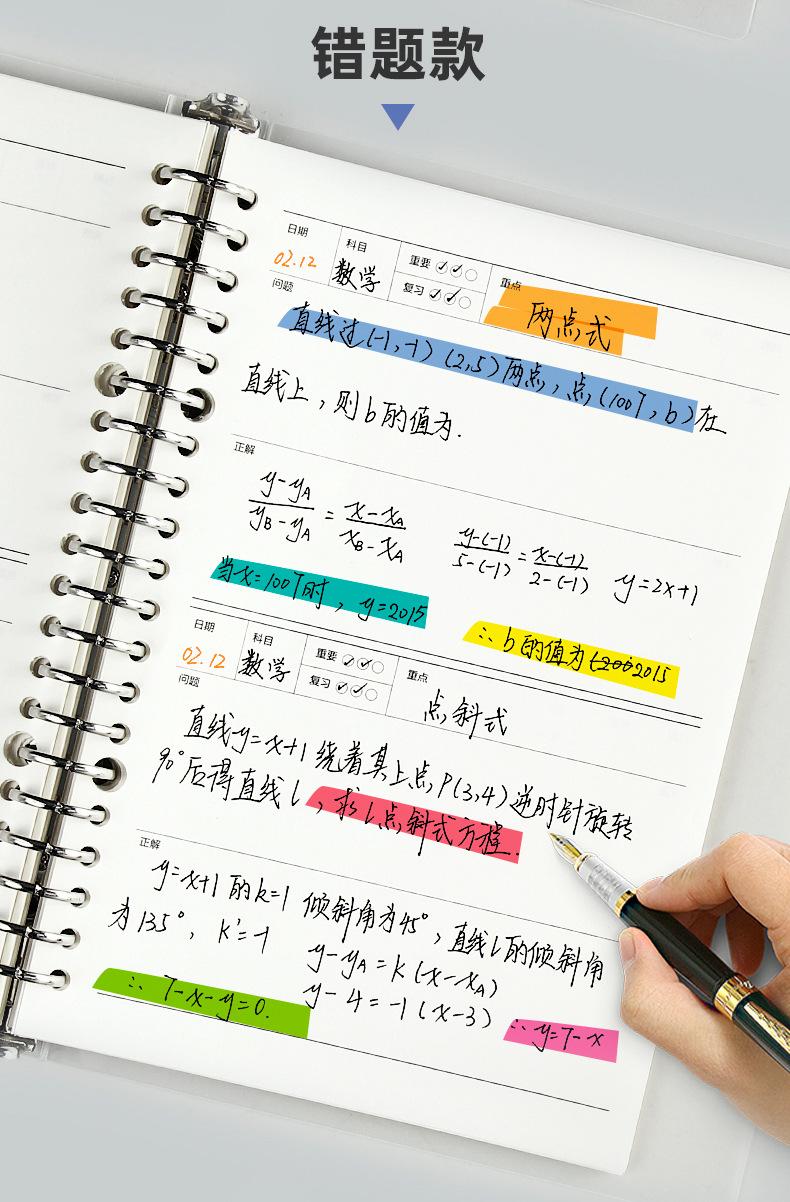 错题款
日期 科目 重要 重点
02.12 数学 复习 两点式
问题
直线过(-1,-1)(2,5)两点,点(1007,b)在
直线上,则b的值为.
正解
y-yA / yB-yA = x-xA / xB-xA y-(-1) / 5-(-1) = x-(-1) / 2-(-1) y=2x+1
当x=1007时, y=2015
∴b的值为 2015
日期 科目 重要 重点
02.12 数学 复习 点斜式
问题
直线y=x+1绕着其上点P(3,4)逆时针旋转
90°后得直线l,求l点斜式方程.
正解
y=x+1的k=1 倾斜角为45°,直线l的倾斜角
为135°, k'=-1 y-yA=k(x-xA)
y-4=-1(x-3)
∴ 7-x-y=0. ∴y=7-x